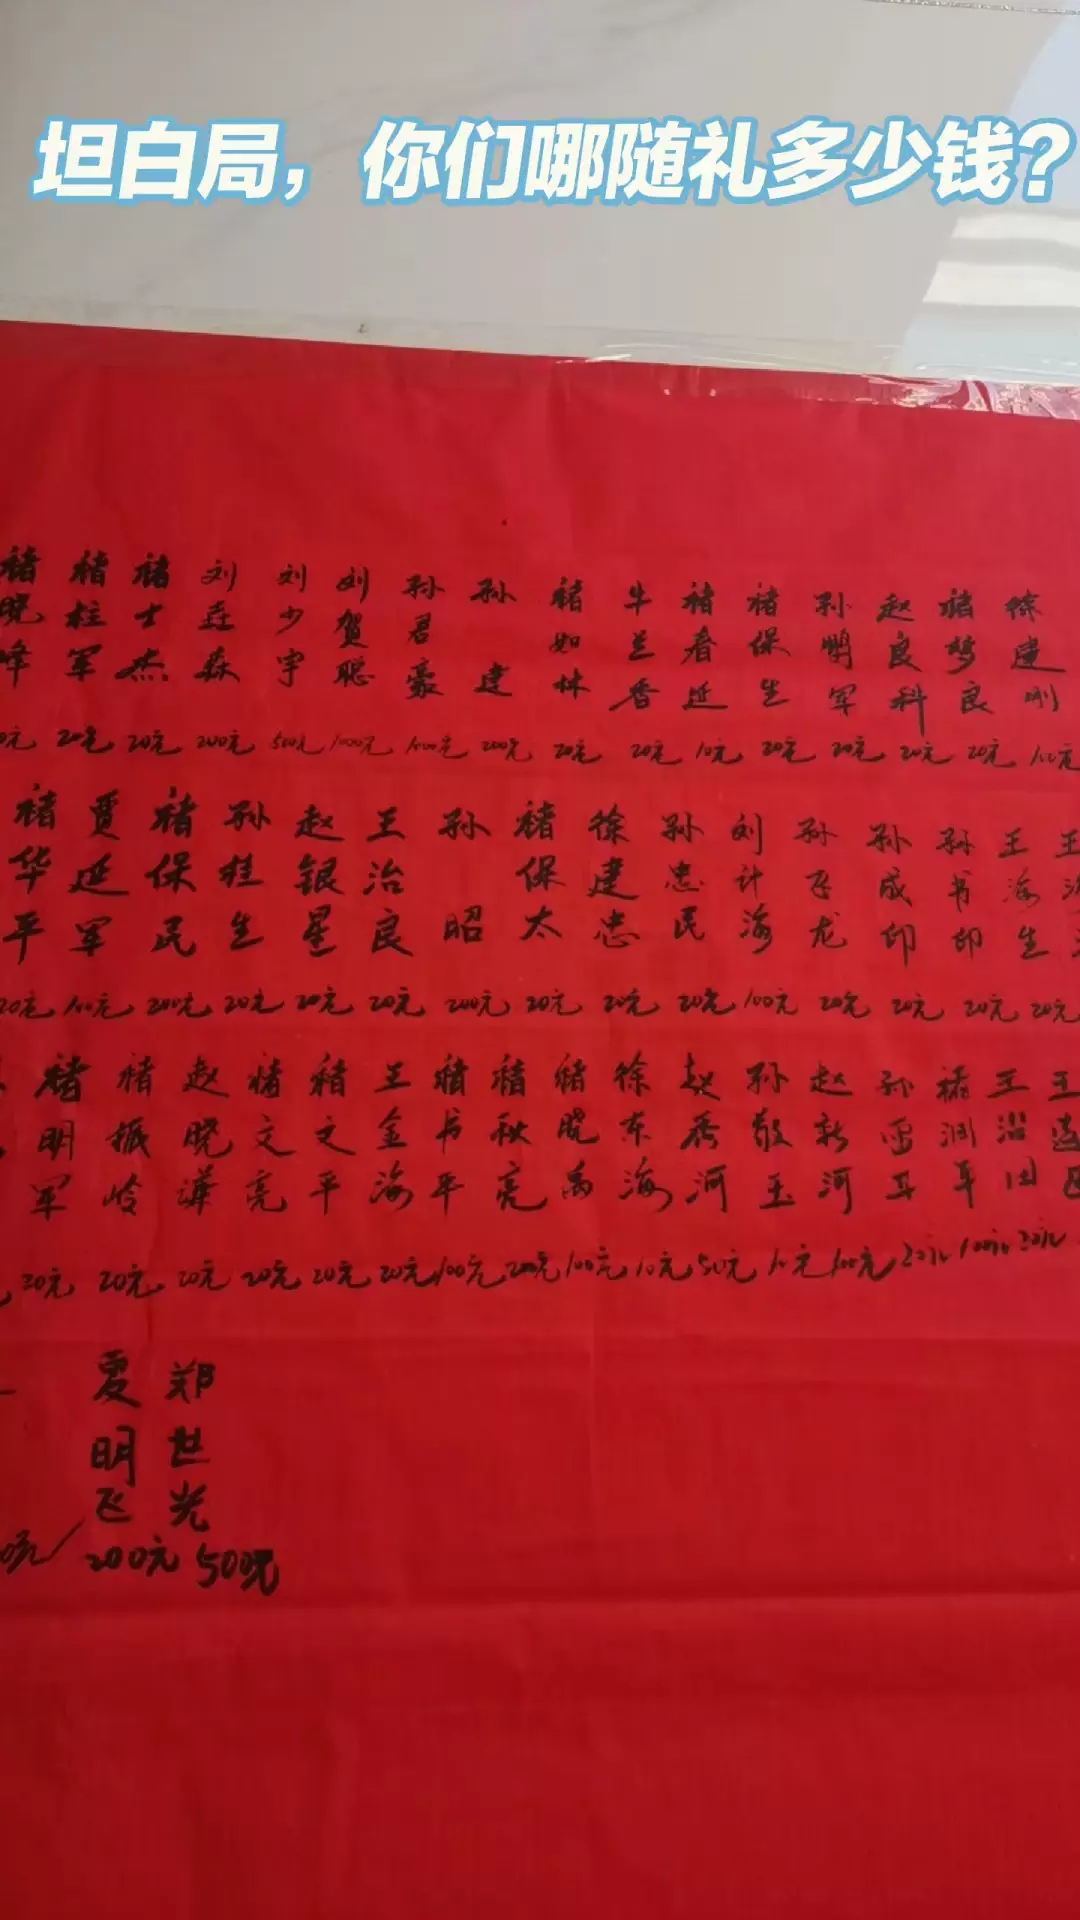 坦白局，你们哪随礼多少钱？
褚晓峰 褚柱军 褚士杰 刘垚森 刘少宇 刘贺聪 孙君豪 孙建 褚如林 牛兰香 褚春延 褚保生 孙鹏军 赵良科 褚梦良 徐建刚
20元 20元 200元 500元 1000元 1000元 200元 20元 20元 10元 20元 20元 20元 20元 100元
褚华平 贾延军 褚保民 孙桂生 赵银星 王治良 孙昭 褚保太 徐建忠 孙忠民 刘计海 孙飞龙 孙成印 孙书印 王海生
20元 100元 200元 20元 20元 20元 200元 20元 20元 20元 100元 20元 20元 20元 20元
褚明军 褚振岭 赵晓谦 褚文亮 褚文平 王金海 褚书平 褚秋亮 褚晓禹 徐东海 赵秀河 孙敬玉 赵新河
20元 20元 20元 20元 20元 20元 100元 200元 100元 10元 50元 10元 100元 20元 100元 20元
夏明飞 郑世光
200元 500元